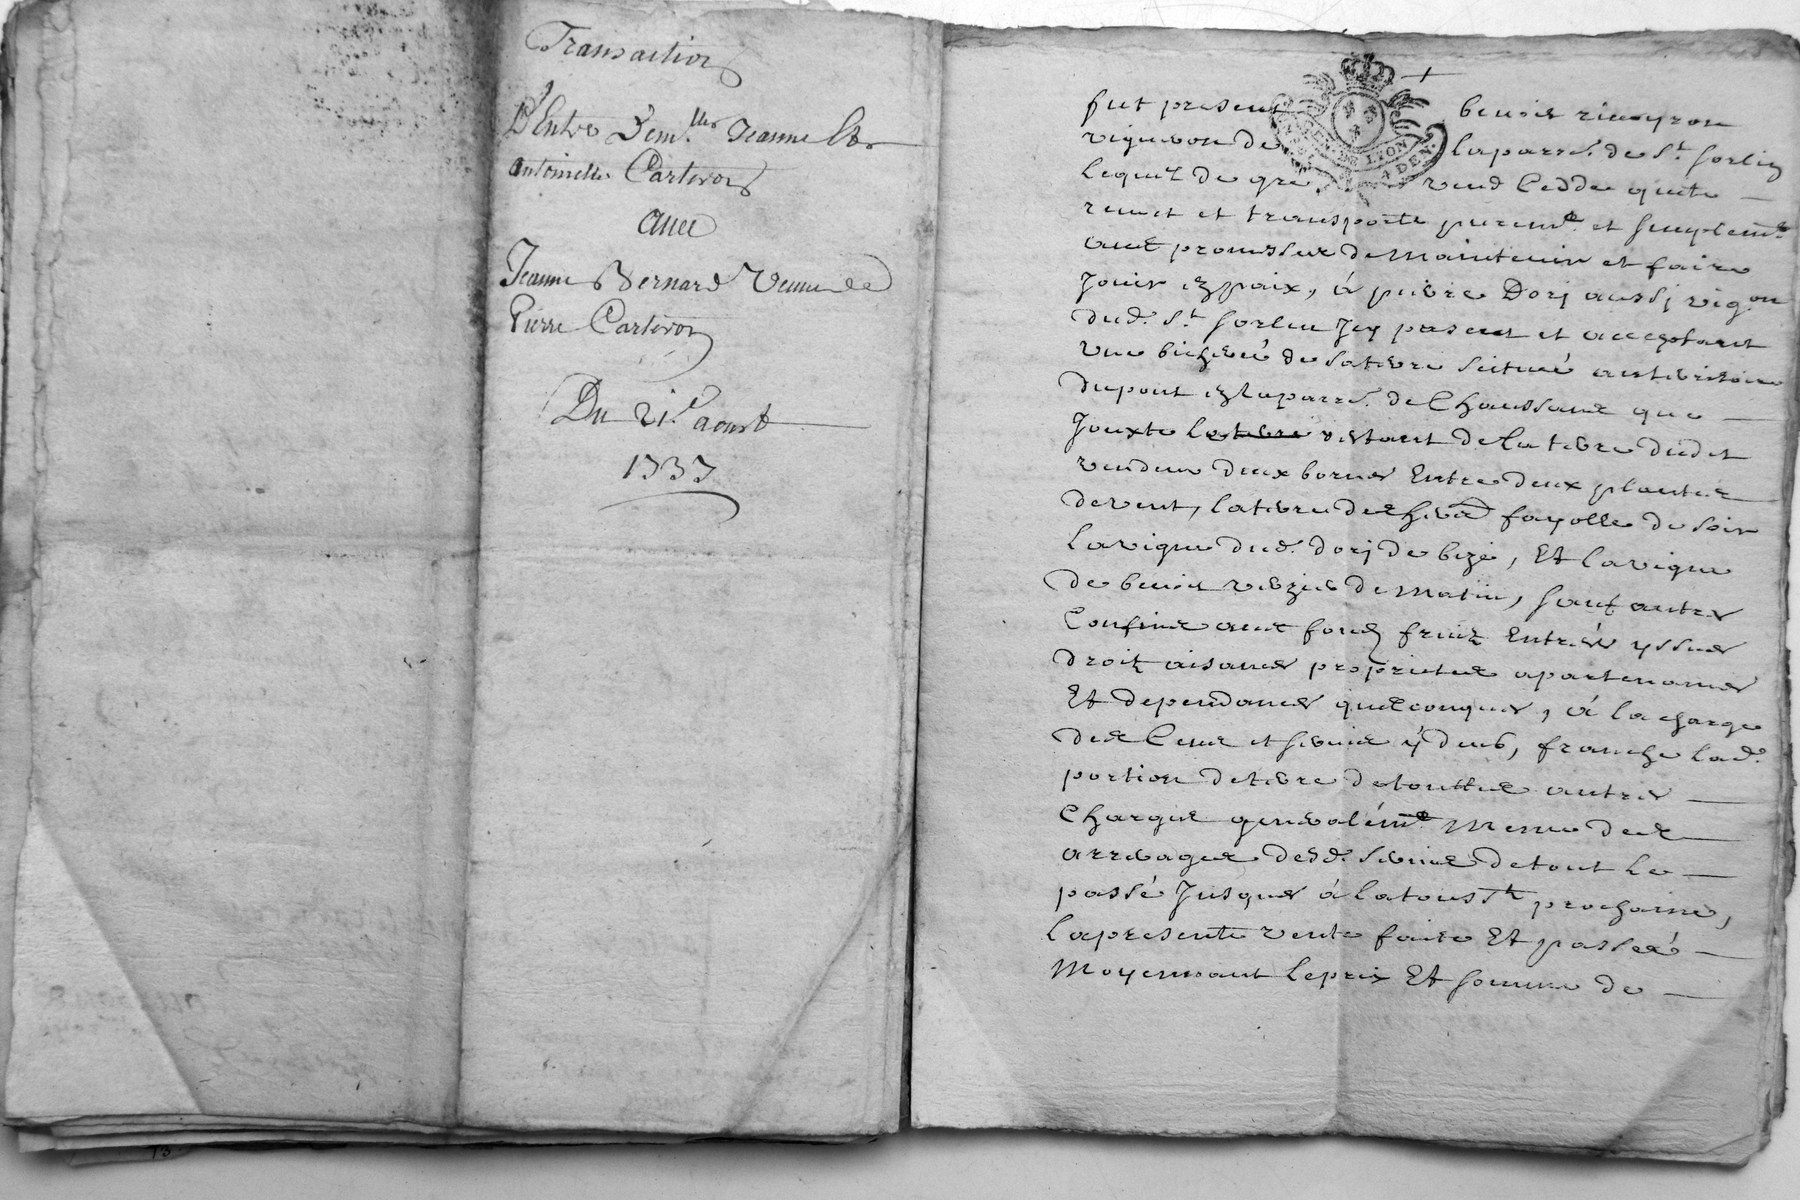 Transaction
D'Entre Dem.lles Jeanne Et
antoinette Carteron
avec
Jeanne Bernard Veuve de
Pierre Carteron
Du 21.e aoust
1737
fut present benoit rivoyron
vigneron de la parr.e de S.t Sorlin
lequel de gré vend cedde quitte
remet et transporte purem.t et simplem.t
avec promesse de maintenir et faire
jouir en paix, à pierre Dorj aussj vig.on
dud. S.t Sorlin Icy present et acceptant
une bicherée de sa terre scituée au territoire
du pont en la parr.e de Chaussant que
Jouxte la terre restant de la terre dudit
vendeur deux bornes Entre deux plantées
de vent, la terre des h fayolle de soir
la vigne dud. dorj de bize, Et la vigne
de benoit de matin, sauf autres
Confins avec fond fruit Entrées yssues
droit aisances proprietes apartenances
Et dependances quelconques, à la charge
des Cens et servis y deub, franche lad.
portion de terre de touttes autres
Charges generalem.t mesme des
arrerages desd. servis de tout le
passé Jusques à la touss.t prochaine,
la presente vente faite Et passée
Moyennant le prix Et somme de
GEN. DE LYON
4 DEN.